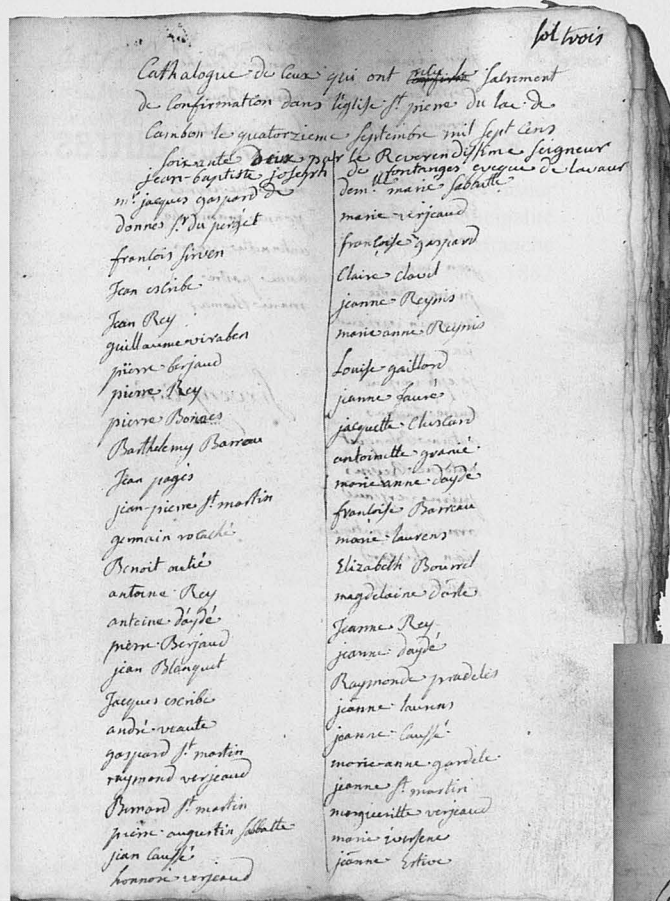 fol trois
Cathalogue de ceux qui ont sacrement
de confirmation dans l'eglise st. pierre du lac de
Cambon le quatorzieme septembre mil sept cens
soixante deux par le Reverendissime seigneur
jean-baptiste joseph de fontanges eveque de lavaur
mr. jacques gaspard de
donnes sr. du perget
françois sirven
Jean escribe
Jean Rey
guillaume viraben
pierre berjaud
pierre Rey
pierre Bonnes
Barthelemy Barreau
Jean pagés
jean-pierre st. martin
germain
Benoit autié
antoine Rey
antoine daÿdé
pierre Berjaud
jean Blanquet
Jacques escribe
andré veaute
gaspard st. martin
raymond verjeaud
Bernard st. martin
pierre augustin sabbatte
jean Caussé
honnoré verjeaud
demlle. marie sabbatte
marie verjeaud
françoise gaspard
Claire clavel
jeanne Reynis
marie anne Reynis
Louise gaillard
jeanne fauré
jacquette
antoinette
marie anne daÿdé
françoise Barreau
marie laurens
Elizabeth Bourrel
magdelaine
Jeanne Rey
jeanne daydé
Raymonde pradeles
jeanne laurens
jeanne Caussé
marie anne gardele
jeanne st. martin
margueritte verjeaud
marie
jeanne Estive